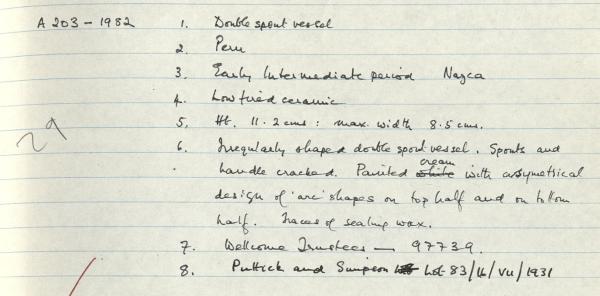 A 203 - 1982 1. Double spout vessel
2. Peru
3. Early Intermediate period Nazca
4. Low fired ceramic
5. Ht. 11.2 cms : max. width 8.5 cms.
29
6. Irregularly shaped double spout vessel. Spouts and
handle cracked. Painted white cream with assymetrical
design of 'arc' shapes on top half and on bottom
half. Traces of sealing wax.
7. Wellcome Trustees — 97739.
8. Puttick and Simpson Lot 83/16/VII/1931